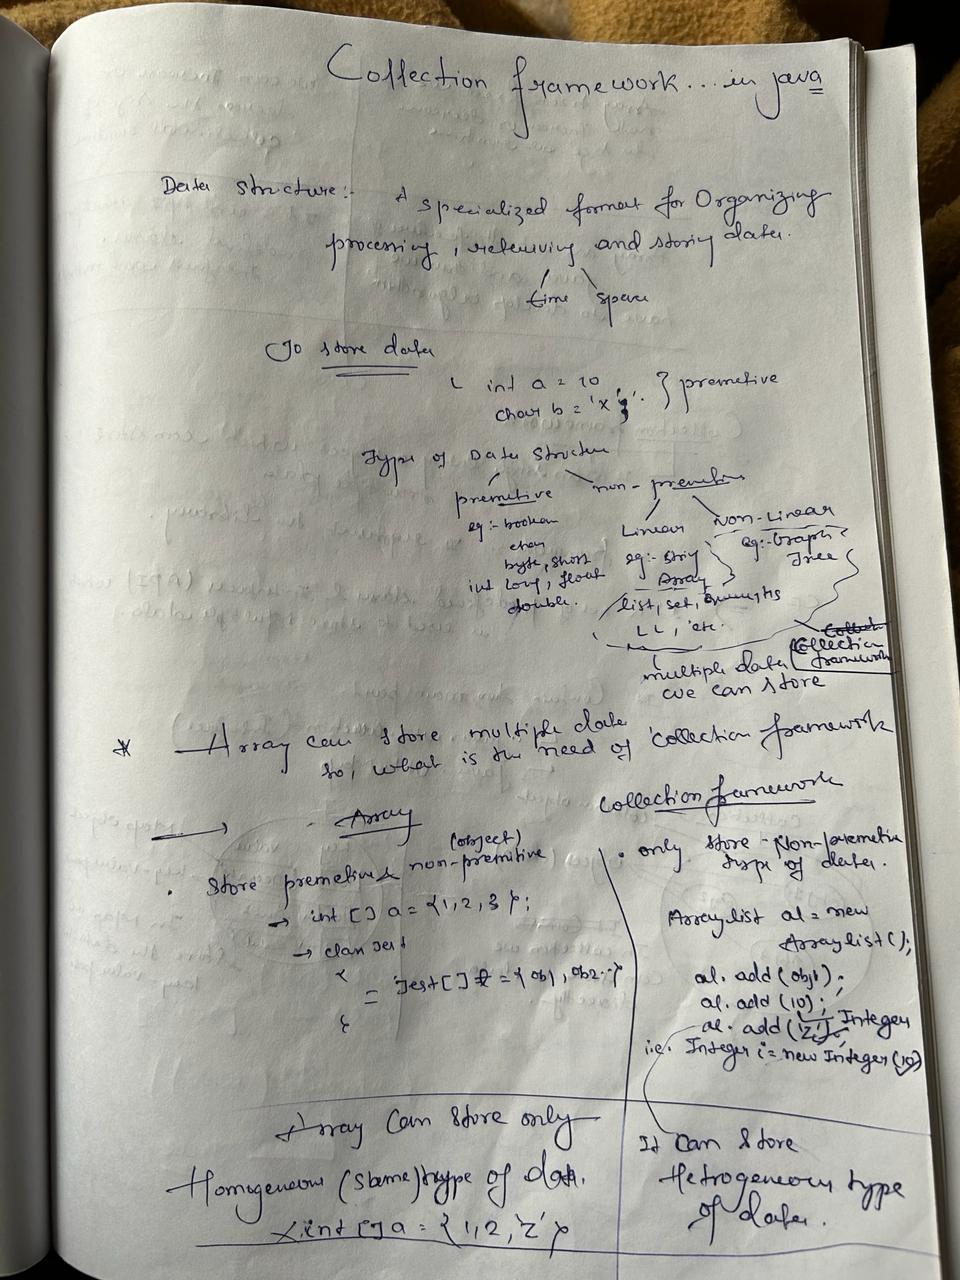 Collection framework... in java
Data structure:- A specialized format for Organizing
processing, retreiving and storing data.
time space
To store data
int a = 10
char b = 'x'; } premetive
Type of Data Structure
premetive non-premetive
eg:- boolean
char
byte, short
int long, float
double.
Linear Non-Linear
eg:- String
Array
list, set,
LL, etc.
eg:- Graph
Tree
Collection
framework
multiple data
we can store
* Array can store multiple data
so, what is the need of collection framework
→ Array
(object)
. Store premetive & non-premitive
→ int [] a = {1, 2, 3};
→ class Test
{
= Test[] t = {ob1, ob2..}
}
Collection framework
. only store Non-premetive
type of data.
Arraylist al = new
Arraylist();
al. add (obj1);
al. add (10);
al. add ('Z'); Integer
i.e. Integer i = new Integer (10)
Array Can Store only
Homogeneous (same) type of data.
x int [] a = {1, 2, 'Z'}
It Can Store
Hetrogeneous type
of data.